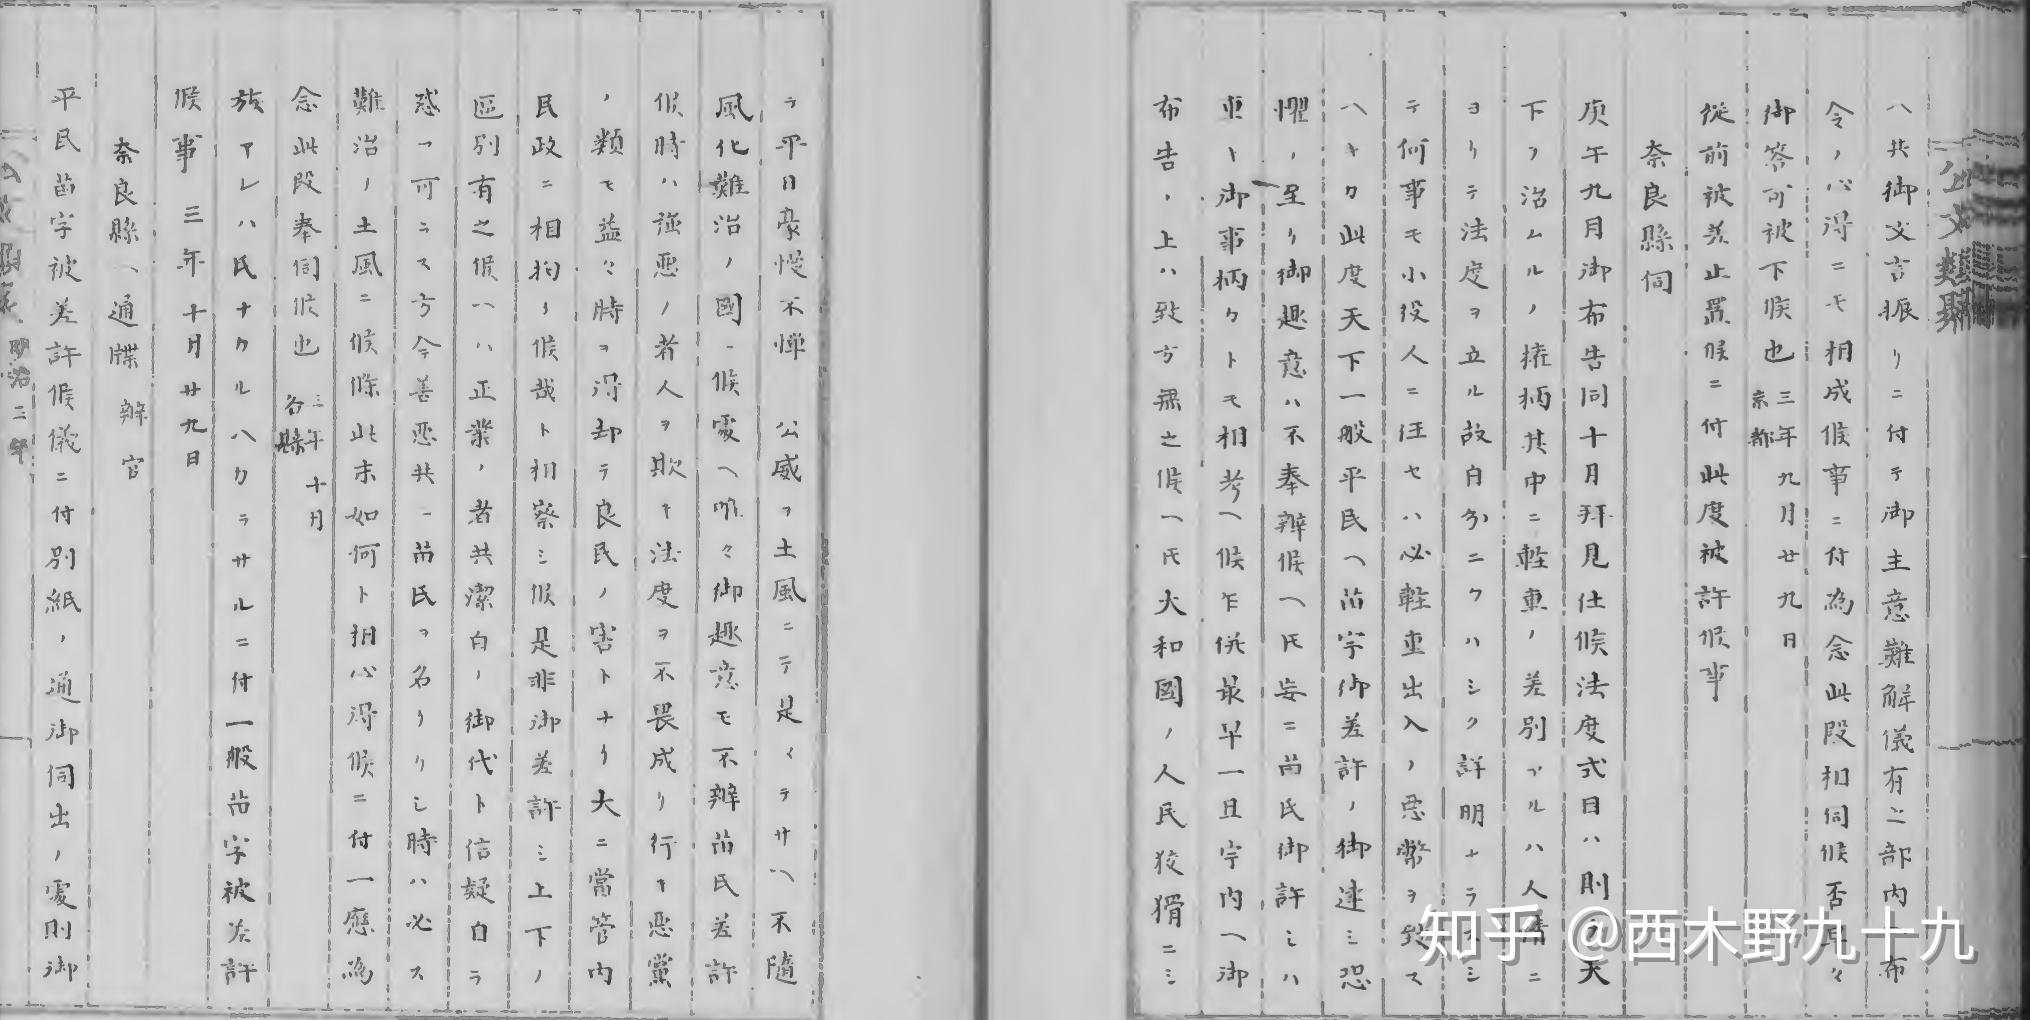 ハ共御文言振リニ付テ御主意難解儀有之部内ヘ布
令ノ心得ニモ相成候事ニ付為念此段相伺候否早々
御答可被下候也 三年九月廿九日 京都
従前被差止置候ニ付此度被許候事
奈良縣伺
庚午九月御布告同十月拜見仕候法度式目ハ則チ天
下ヲ治ムルノ権柄其中ニ軽重ノ差別アルハ人情ニ
ヨリテ法度ヲ立ル故自分ニクハシク詳明ナラスシ
テ何事モ小役人ニ任セハ必軽重出入ノ悪幣ヲ致ス
ヘキカ此度天下一般平民ヘ苗字御差許ノ御達シ恐
懼ノ至リ御趣意ハ不奉辨候ヘ氏妄ニ苗氏御許シハ
重ト御事柄クトモ相考ヘ候乍併最早一旦宇内ヘ御
布告ノ上ハ致方無之候ヘ氏大和國ノ人民狡猾ニシ
テ平日豪慢不憚 公威ヲ土風ニテ是イラサハ不隨
風化難治ノ國ニ候處ヘ唯々御趣意モ不辨苗氏差許
候時ハ強悪ノ者人ヲ欺キ法度ヲ不畏成リ行キ悪黨
ノ類モ益々時ヲ得却テ良民ノ害トナリ大ニ當管内
民政ニ相拘リ候哉ト相察シ候是非御差許シ上下ノ
區別有之候ハハ正業ノ者共潔白ノ御代ト信疑自ラ
惑フ可ラス方今善悪共ニ苗氏ヲ名リリシ時ハ必ス
難治ノ土風ニ候條此末如何ト相心得候ニ付一應為
念此段奉伺候也 三年十月 各縣
族アレハ氏ナクルハカラサルニ付一般苗字被差許
候事 三年十月廿九日
奈良縣ヘ通牒 辨官
平民苗字被差許候儀ニ付別紙ノ通御伺出ノ處則御
公文類聚
明治三年
知乎 @西木野九十九